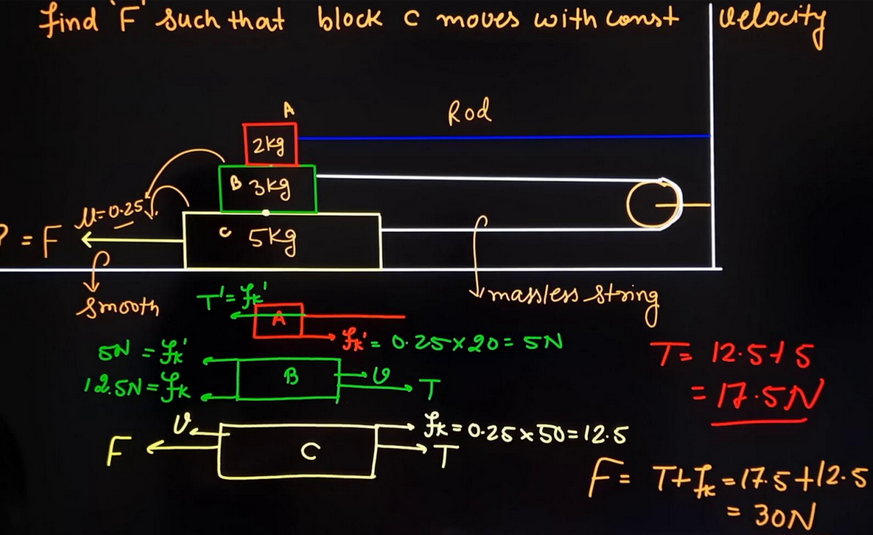 find 'F' such that block C moves with const velocity
A
Rod
2kg
B 3kg
μ=0.25
? = F
C 5kg
smooth
massless string
T' = fk'
A
fk' = 0.25×20 = 5N
5N = fk'
12.5N = fk
B
v
T
T = 12.5+5
= 17.5N
v
F
C
fk = 0.25×50 = 12.5
T
F = T+fk = 17.5+12.5
= 30N